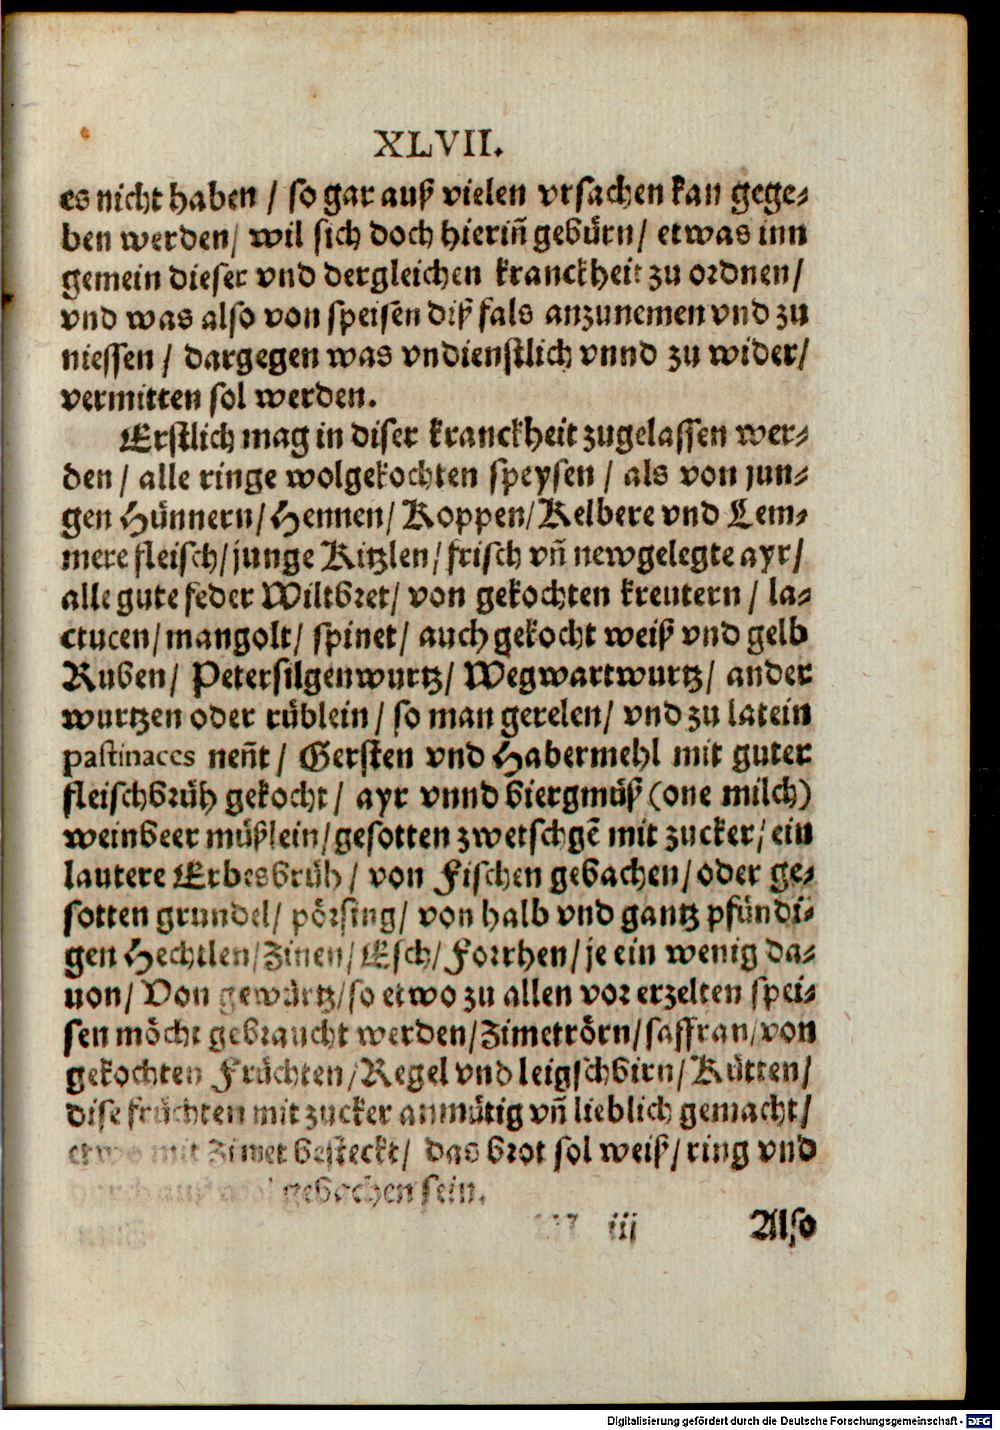 XLVII.
es nicht haben / so gar auß vielen vrsachen kan gege⸗
ben werden/ wil sich doch hierin̄ gebürn/ etwas inn
gemein dieser vnd dergleichen kranckheit zu ordnen/
vnd was also von speisen diß fals anzunemen vnd zu
niessen / dargegen was vndienstlich vnnd zu wider/
vermitten sol werden.
Erstlich mag in diser kranckheit zugelassen wer⸗
den / alle ringe wolgekochten speysen / als von jun⸗
gen Hünnern/ Hennen/ Koppen/ Kelbere vnd Lem⸗
mere fleisch/ junge Kitzlen/ frisch vn̄ newgelegte ayr/
alle gute feder Wiltbret/ von gekochten kreutern / la⸗
ctucen/ mangolt/ spinet/ auch gekocht weiß vnd gelb
Ruben/ Petersilgenwurtz/ Wegwartwurtz/ ander
wurtzen oder rüblein/ so man gerelen/ vnd zu latein
pastinaces nen̄t / Gersten vnd Habermehl mit guter
fleischbrüh gekocht/ ayr vnnd biergmüß (one milch)
weinbeer müßlein/ gesotten zwetschgē mit zucker/ ein
lautere Erbesbrüh/ von Fischen gebachen/ oder ge⸗
sotten grundel/ pörsing/ von halb vnd gantz pfündi⸗
gen Hechtlen/ Zinen/ Esch/ Forrhen/ je ein wenig da⸗
uon/ Von gewürtz/ so etwo zu allen vor erzelten spei⸗
sen möcht gebraucht werden/ Zimetrörn/ saffran/ von
gekochten Früchten/ Regel vnd leigschbirn/ Kütten/
dise früchten mit zucker anmütig vn̄ lieblich gemacht/
etwo mit Zimet besteckt/ das brot sol weiß/ ring vnd
gebachen sein.
iij Also
Digitalisierung gefördert durch die Deutsche Forschungsgemeinschaft - DFG